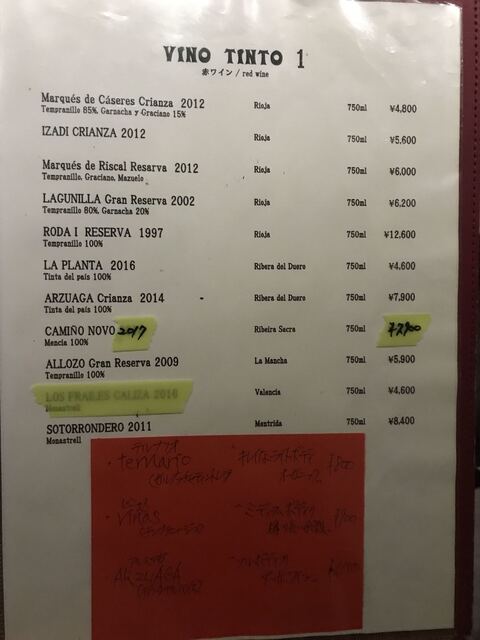 VINO TINTO 1
赤ワイン / red wine
Marqués de Cáseres Crianza 2012 Rioja 750ml ¥4,800
Tempranillo 85%, Garnacha y Graciano 15%
IZADI CRIANZA 2012 Rioja 750ml ¥5,600
Marqués de Riscal Reserva 2012 Rioja 750ml ¥6,000
Tempranillo, Graciano, Mazuelo
LAGUNILLA Gran Reserva 2002 Rioja 750ml ¥6,200
Tempranillo 80%, Garnacha 20%
RODA I RESERVA 1997 Rioja 750ml ¥12,600
Tempranillo 100%
LA PLANTA 2016 Ribera del Duero 750ml ¥4,600
Tinta del país 100%
ARZUAGA Crianza 2014 Ribera del Duero 750ml ¥7,900
Tinta del país 100%
CAMIÑO NOVO 2017 Ribeira Sacra 750ml
Mencia 100%
ALLOZO Gran Reserva 2009 La Mancha 750ml ¥5,900
Tempranillo 100%
LOS FRAILES CALIZA 2016 Valencia 750ml ¥4,600
Monastrell
SOTORRONDERO 2011 Mentrida 750ml ¥8,400
Monastrell
ternario
viñas
ARZUAGA